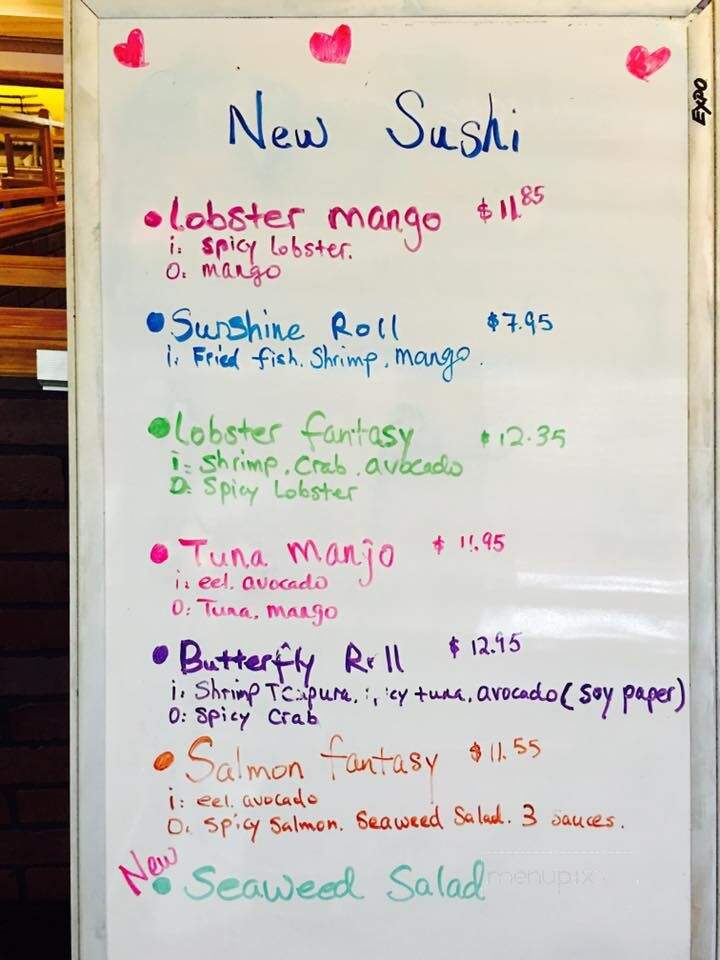 EXPO
New Sushi
Lobster mango $11.85
i: Spicy lobster.
O: mango
Sunshine Roll $7.95
i: Fried fish. Shrimp, mango.
Lobster fantasy $12.35
i: Shrimp. Crab. avocado
O: Spicy Lobster
Tuna Manjo $11.95
i: eel. avocado
O: Tuna, mango
Butterfly Roll $12.95
i: Shrimp tuna, avocado (soy paper)
O: Spicy Crab
Salmon fantasy $11.55
i: eel. avocado
O: Spicy Salmon. Seaweed Salad. 3 sauces.
New
Seaweed Salad
menupix